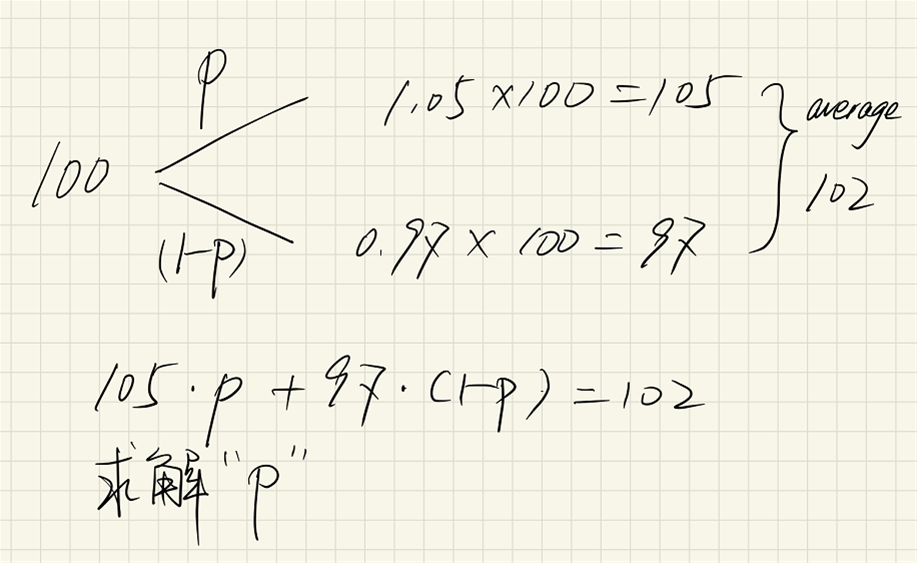 p
1.05 × 100 = 105
average
100
102
(1-p)
0.97 × 100 = 97
105 · p + 97 · (1-p) = 102
求解 "p"